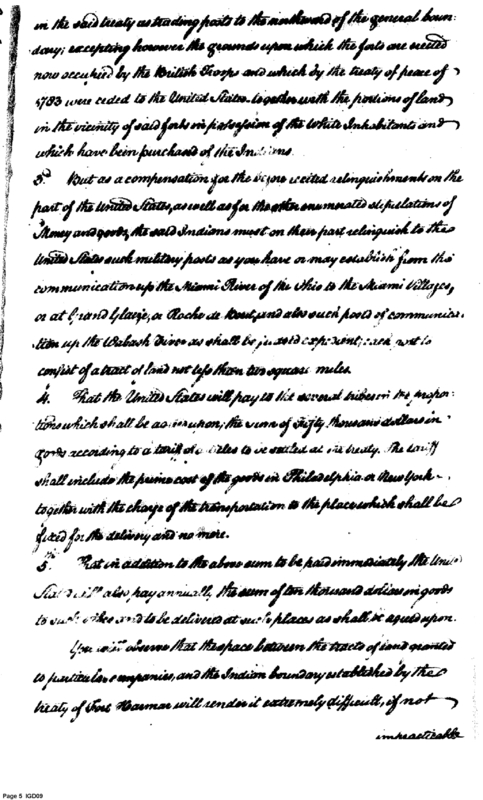 in the said treaty as trading posts to the northward of the general boun-
dary; excepting however the grounds upon which the forts are erected
now occupied by the British Troops and which by the treaty of peace of
1783 were ceded to the United States together with the portions of land
in the vicinity of said forts in possession of the White Inhabitants and
which have been purchased of the Indians.
3d. But as a compensation for the before recited relinquishments on the
part of the United States, as well as for the other enumerated stipulations of
Money and goods, the said Indians must on their part relinquish to the
United States such military posts as you have or may establish from the
communication up the Miami River of the Ohio to the Miami Villages,
or at Grand Glaize, or Roche de Bout, and also such posts of communica-
tion up the Wabash River as shall be judged expedient; each not to
consist of a tract of land not less than ten square miles.
4. That the United States will pay to the several tribes in the propor-
tions which shall be agreed upon, the sum of Fifty thousand dollars in
goods according to a tariff of rates to be settled at the treaty. The tariff
shall include the prime cost of the goods in Philadelphia or New York
together with the charge of the transportation to the place which shall be
fixed for the delivery and no more.
5th. That in addition to the above sum to be paid immediately the United
States will also, pay annually, the sum of ten thousand dollars in goods
to such tribes and to be delivered at such places as shall be agreed upon.
You will observe that the space between the tracts of land granted
to particular companies, and the Indian boundary established by the
treaty of Fort Harmar will render it extremely difficult, if not
impracticable
Page 5 IGD09